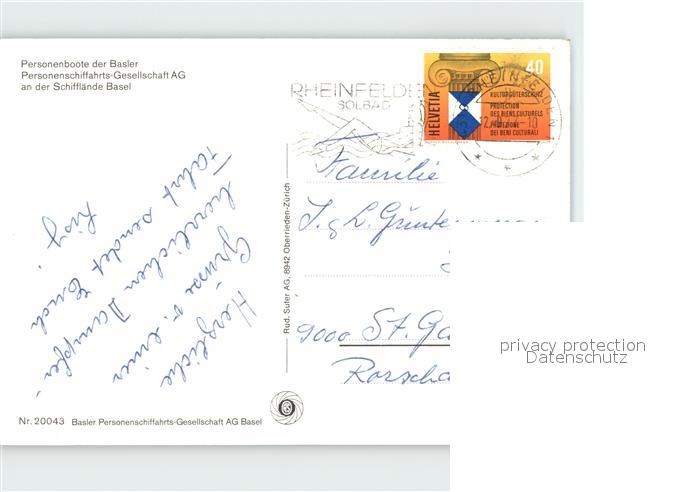 Personenboote der Basler
Personenschiffahrts-Gesellschaft AG
an der Schifflände Basel
RHEINFELDEN
SOLBAD
40
HELVETIA
KULTURGÜTERSCHUTZ
PROTECTION
DES BIENS CULTURELS
PROTEZIONE
DEI BENI CULTURALI
Herzliche
Grüsse v. einer
herrlichen Dampfer-
Fahrt sendet Euch
Rud. Suter AG, 8942 Oberrieden-Zürich
Familie
9000 St. Ga
Rorscha
privacy protection
Datenschutz
Nr. 20043 Basler Personenschiffahrts-Gesellschaft AG Basel